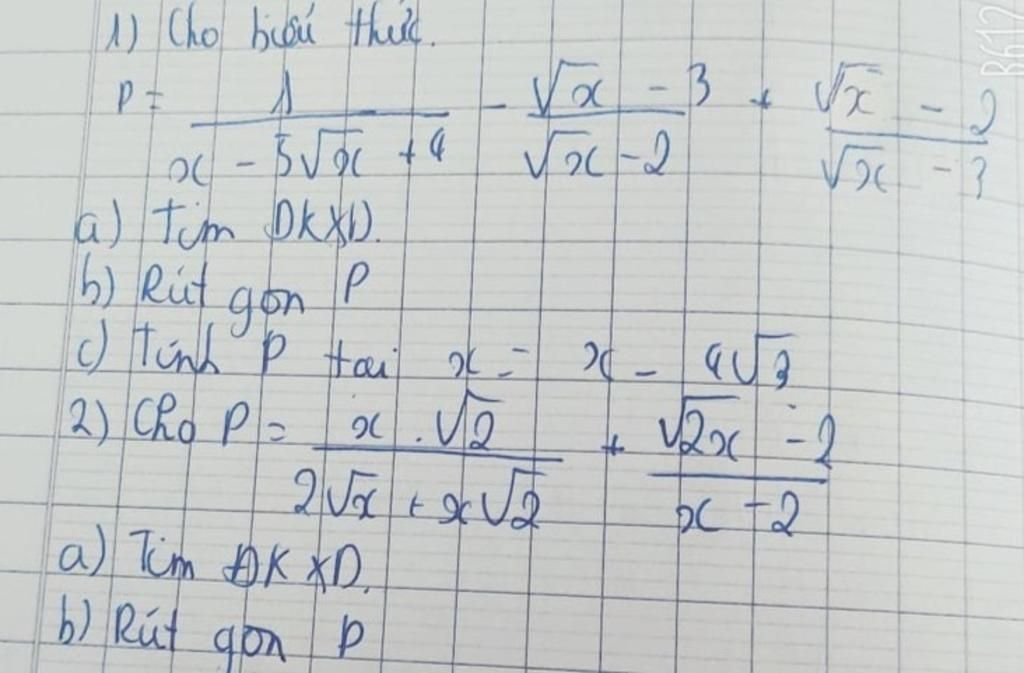 1) Cho biểu thức.
P = 1/(x - 5√x + 4) - (√x - 3)/(√x - 2) + (√x - 2)/(√x - 3)
a) Tìm ĐKXĐ.
b) Rút gọn P
c) Tính P tại x = x - 4√3
2) Cho P = (x . √2)/(2√x + x√2) + (√2x - 2)/(x - 2)
a) Tìm ĐKXĐ.
b) Rút gọn P